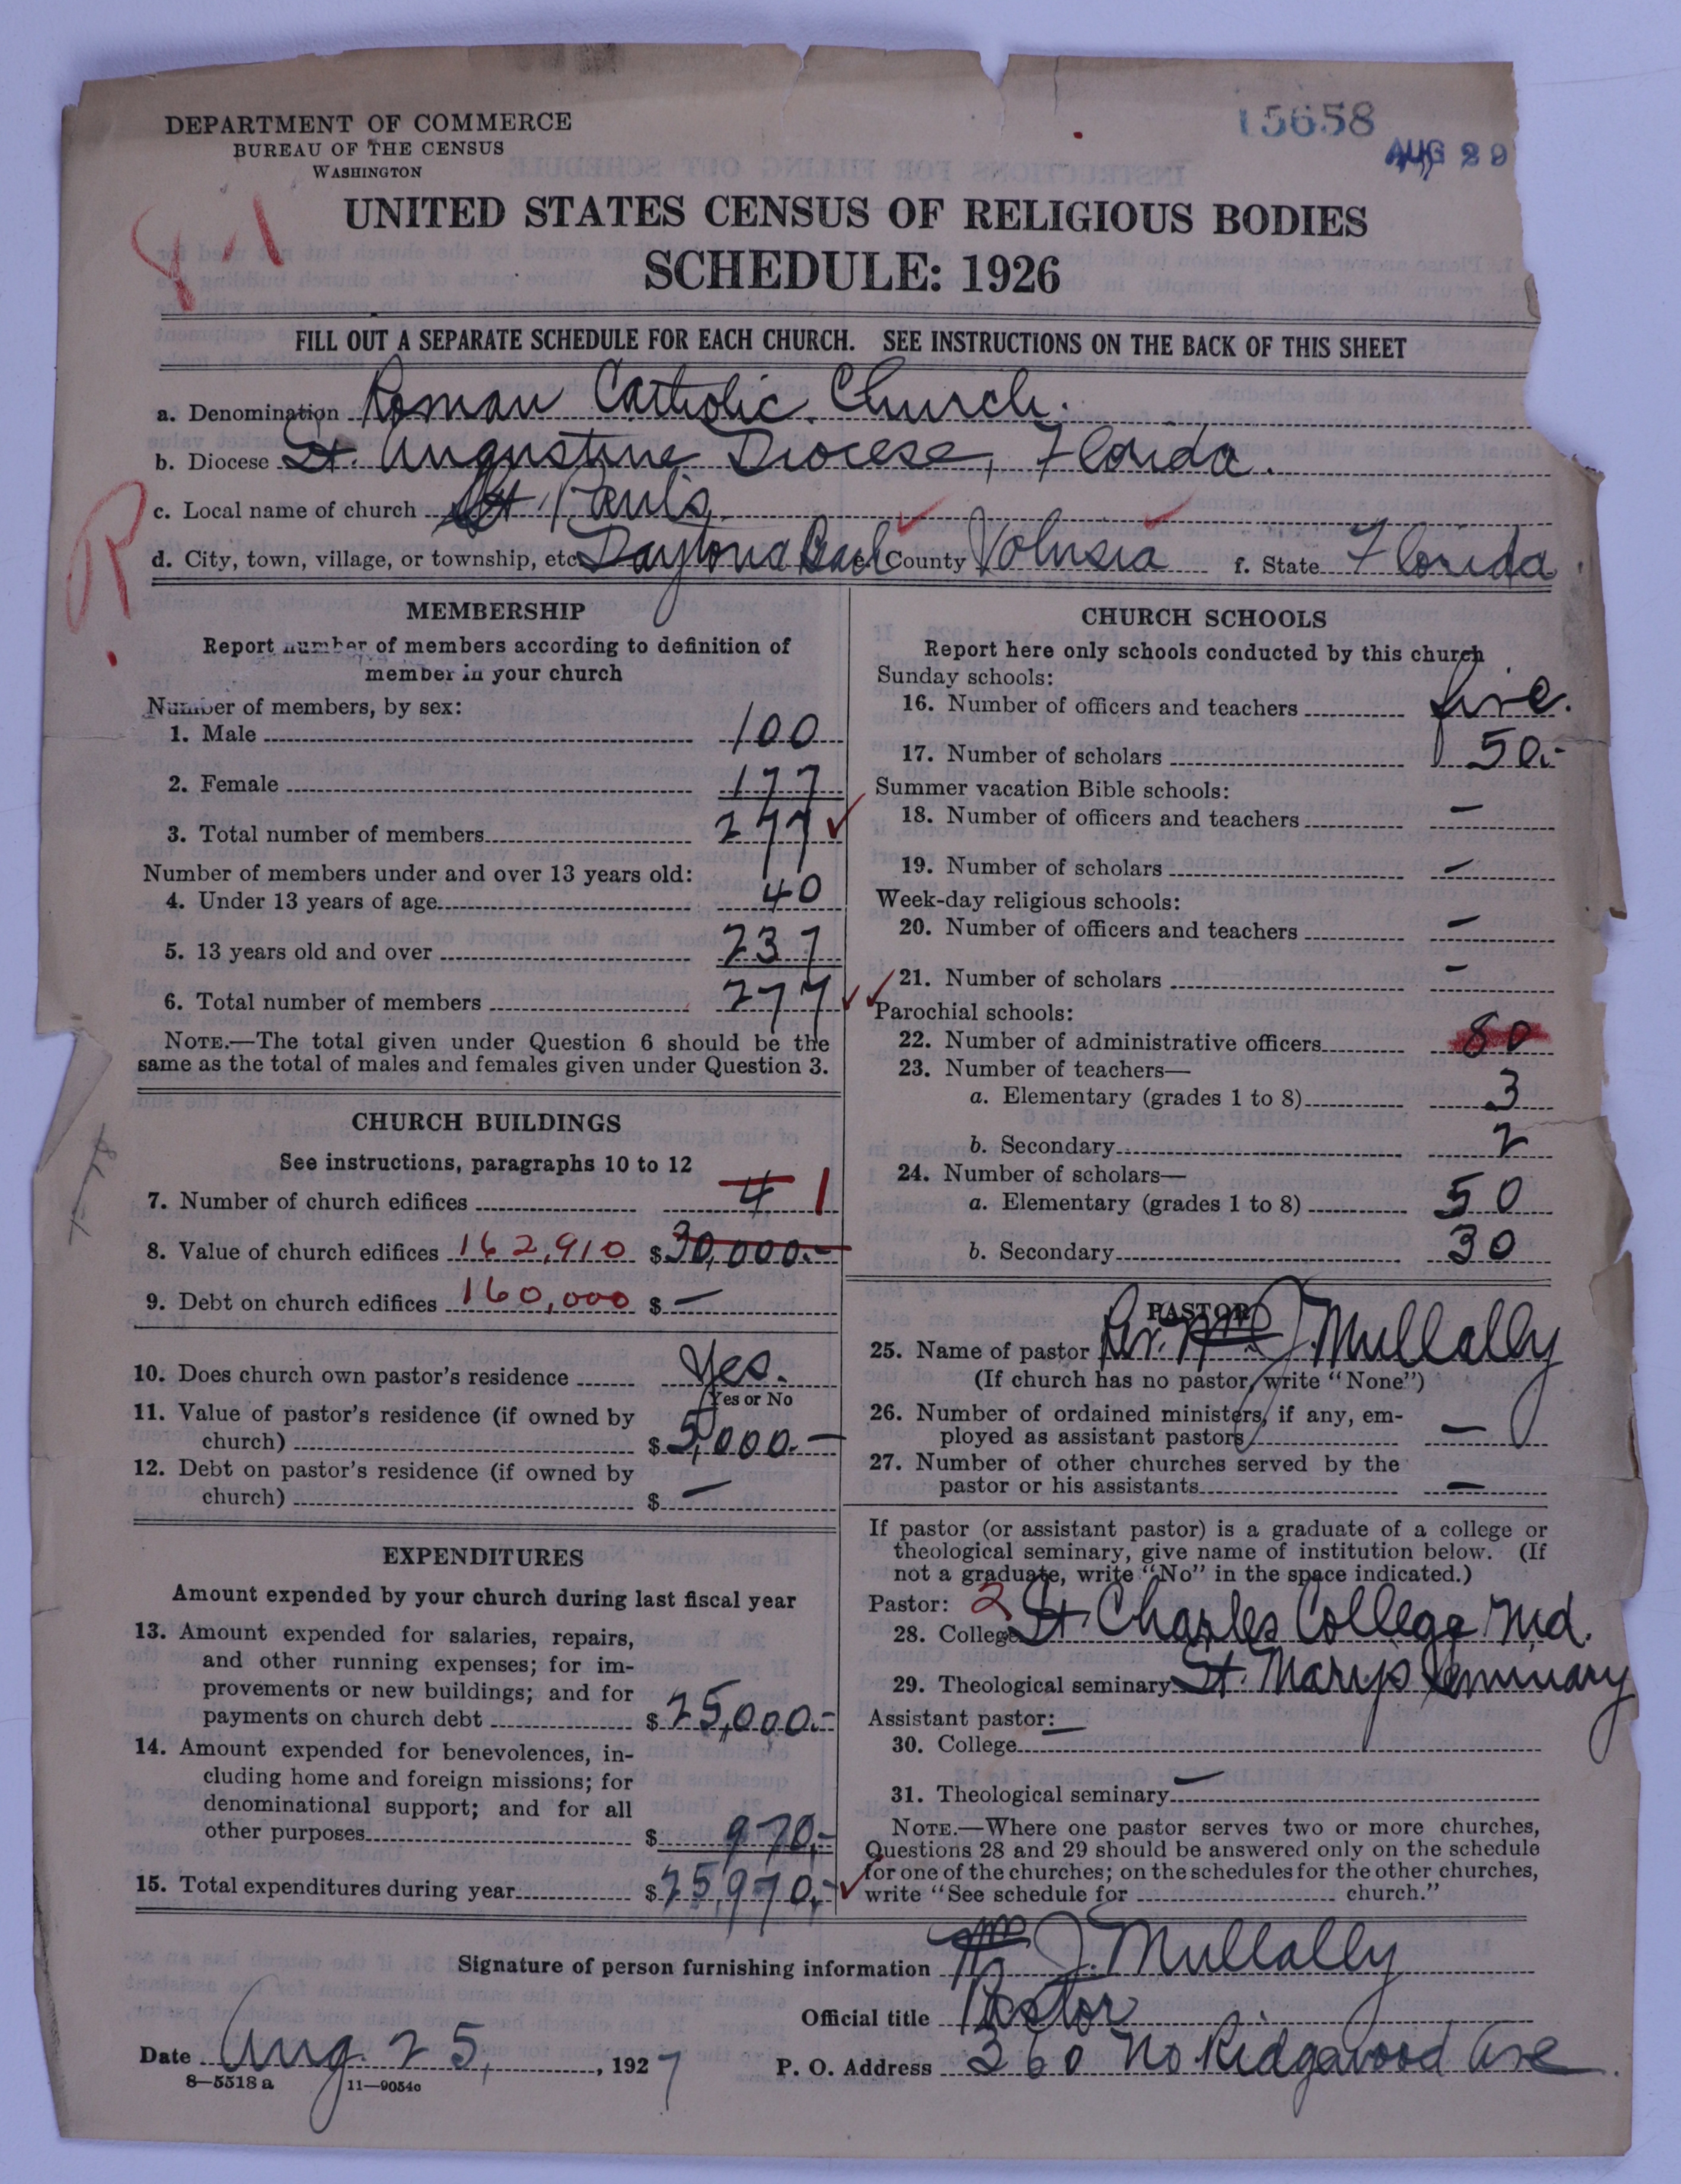 DEPARTMENT OF COMMERCE
BUREAU OF THE CENSUS
WASHINGTON
15658
AUG 29
UNITED STATES CENSUS OF RELIGIOUS BODIES
SCHEDULE: 1926
FILL OUT A SEPARATE SCHEDULE FOR EACH CHURCH. SEE INSTRUCTIONS ON THE BACK OF THIS SHEET
a. Denomination Roman Catholic Church.
b. Diocese St. Augustine Diocese, Florida.
c. Local name of church St Paul's
d. City, town, village, or township, etc. Daytona Beach e. County Volusia f. State Florida
MEMBERSHIP
Report number of members according to definition of
member in your church
Number of members, by sex:
1. Male 100
2. Female 177
3. Total number of members 277
Number of members under and over 13 years old:
4. Under 13 years of age 40
5. 13 years old and over 237
6. Total number of members 277
NOTE.—The total given under Question 6 should be the
same as the total of males and females given under Question 3.
CHURCH BUILDINGS
See instructions, paragraphs 10 to 12
7. Number of church edifices 4 1
8. Value of church edifices 162,910 $30,000.-
9. Debt on church edifices 160,000 $ —
10. Does church own pastor's residence Yes.
Yes or No
11. Value of pastor's residence (if owned by
church) $5,000.-
12. Debt on pastor's residence (if owned by
church) $ —
EXPENDITURES
Amount expended by your church during last fiscal year
13. Amount expended for salaries, repairs,
and other running expenses; for im-
provements or new buildings; and for
payments on church debt $25,000.-
14. Amount expended for benevolences, in-
cluding home and foreign missions; for
denominational support; and for all
other purposes $ 970.-
15. Total expenditures during year $25,970.-
CHURCH SCHOOLS
Report here only schools conducted by this church
Sunday schools:
16. Number of officers and teachers five.
17. Number of scholars 50.-
Summer vacation Bible schools:
18. Number of officers and teachers —
19. Number of scholars —
Week-day religious schools:
20. Number of officers and teachers —
21. Number of scholars —
Parochial schools:
22. Number of administrative officers 80
23. Number of teachers—
a. Elementary (grades 1 to 8) 3
b. Secondary 2
24. Number of scholars—
a. Elementary (grades 1 to 8) 50
b. Secondary 30
PASTOR
25. Name of pastor Rev. Wm J. Mullally
(If church has no pastor, write "None")
26. Number of ordained ministers, if any, em-
ployed as assistant pastors —
27. Number of other churches served by the
pastor or his assistants —
If pastor (or assistant pastor) is a graduate of a college or
theological seminary, give name of institution below. (If
not a graduate, write "No" in the space indicated.)
Pastor: 2
28. College St. Charles College Md.
29. Theological seminary St. Mary's Seminary
Assistant pastor: —
30. College
31. Theological seminary —
NOTE.—Where one pastor serves two or more churches,
Questions 28 and 29 should be answered only on the schedule
for one of the churches; on the schedules for the other churches,
write "See schedule for church."
Signature of person furnishing information Wm J. Mullally
Official title Pastor
Date Aug. 25, , 1927 P. O. Address 360 No Ridgewood Ave
8—5518 a 11—9054c